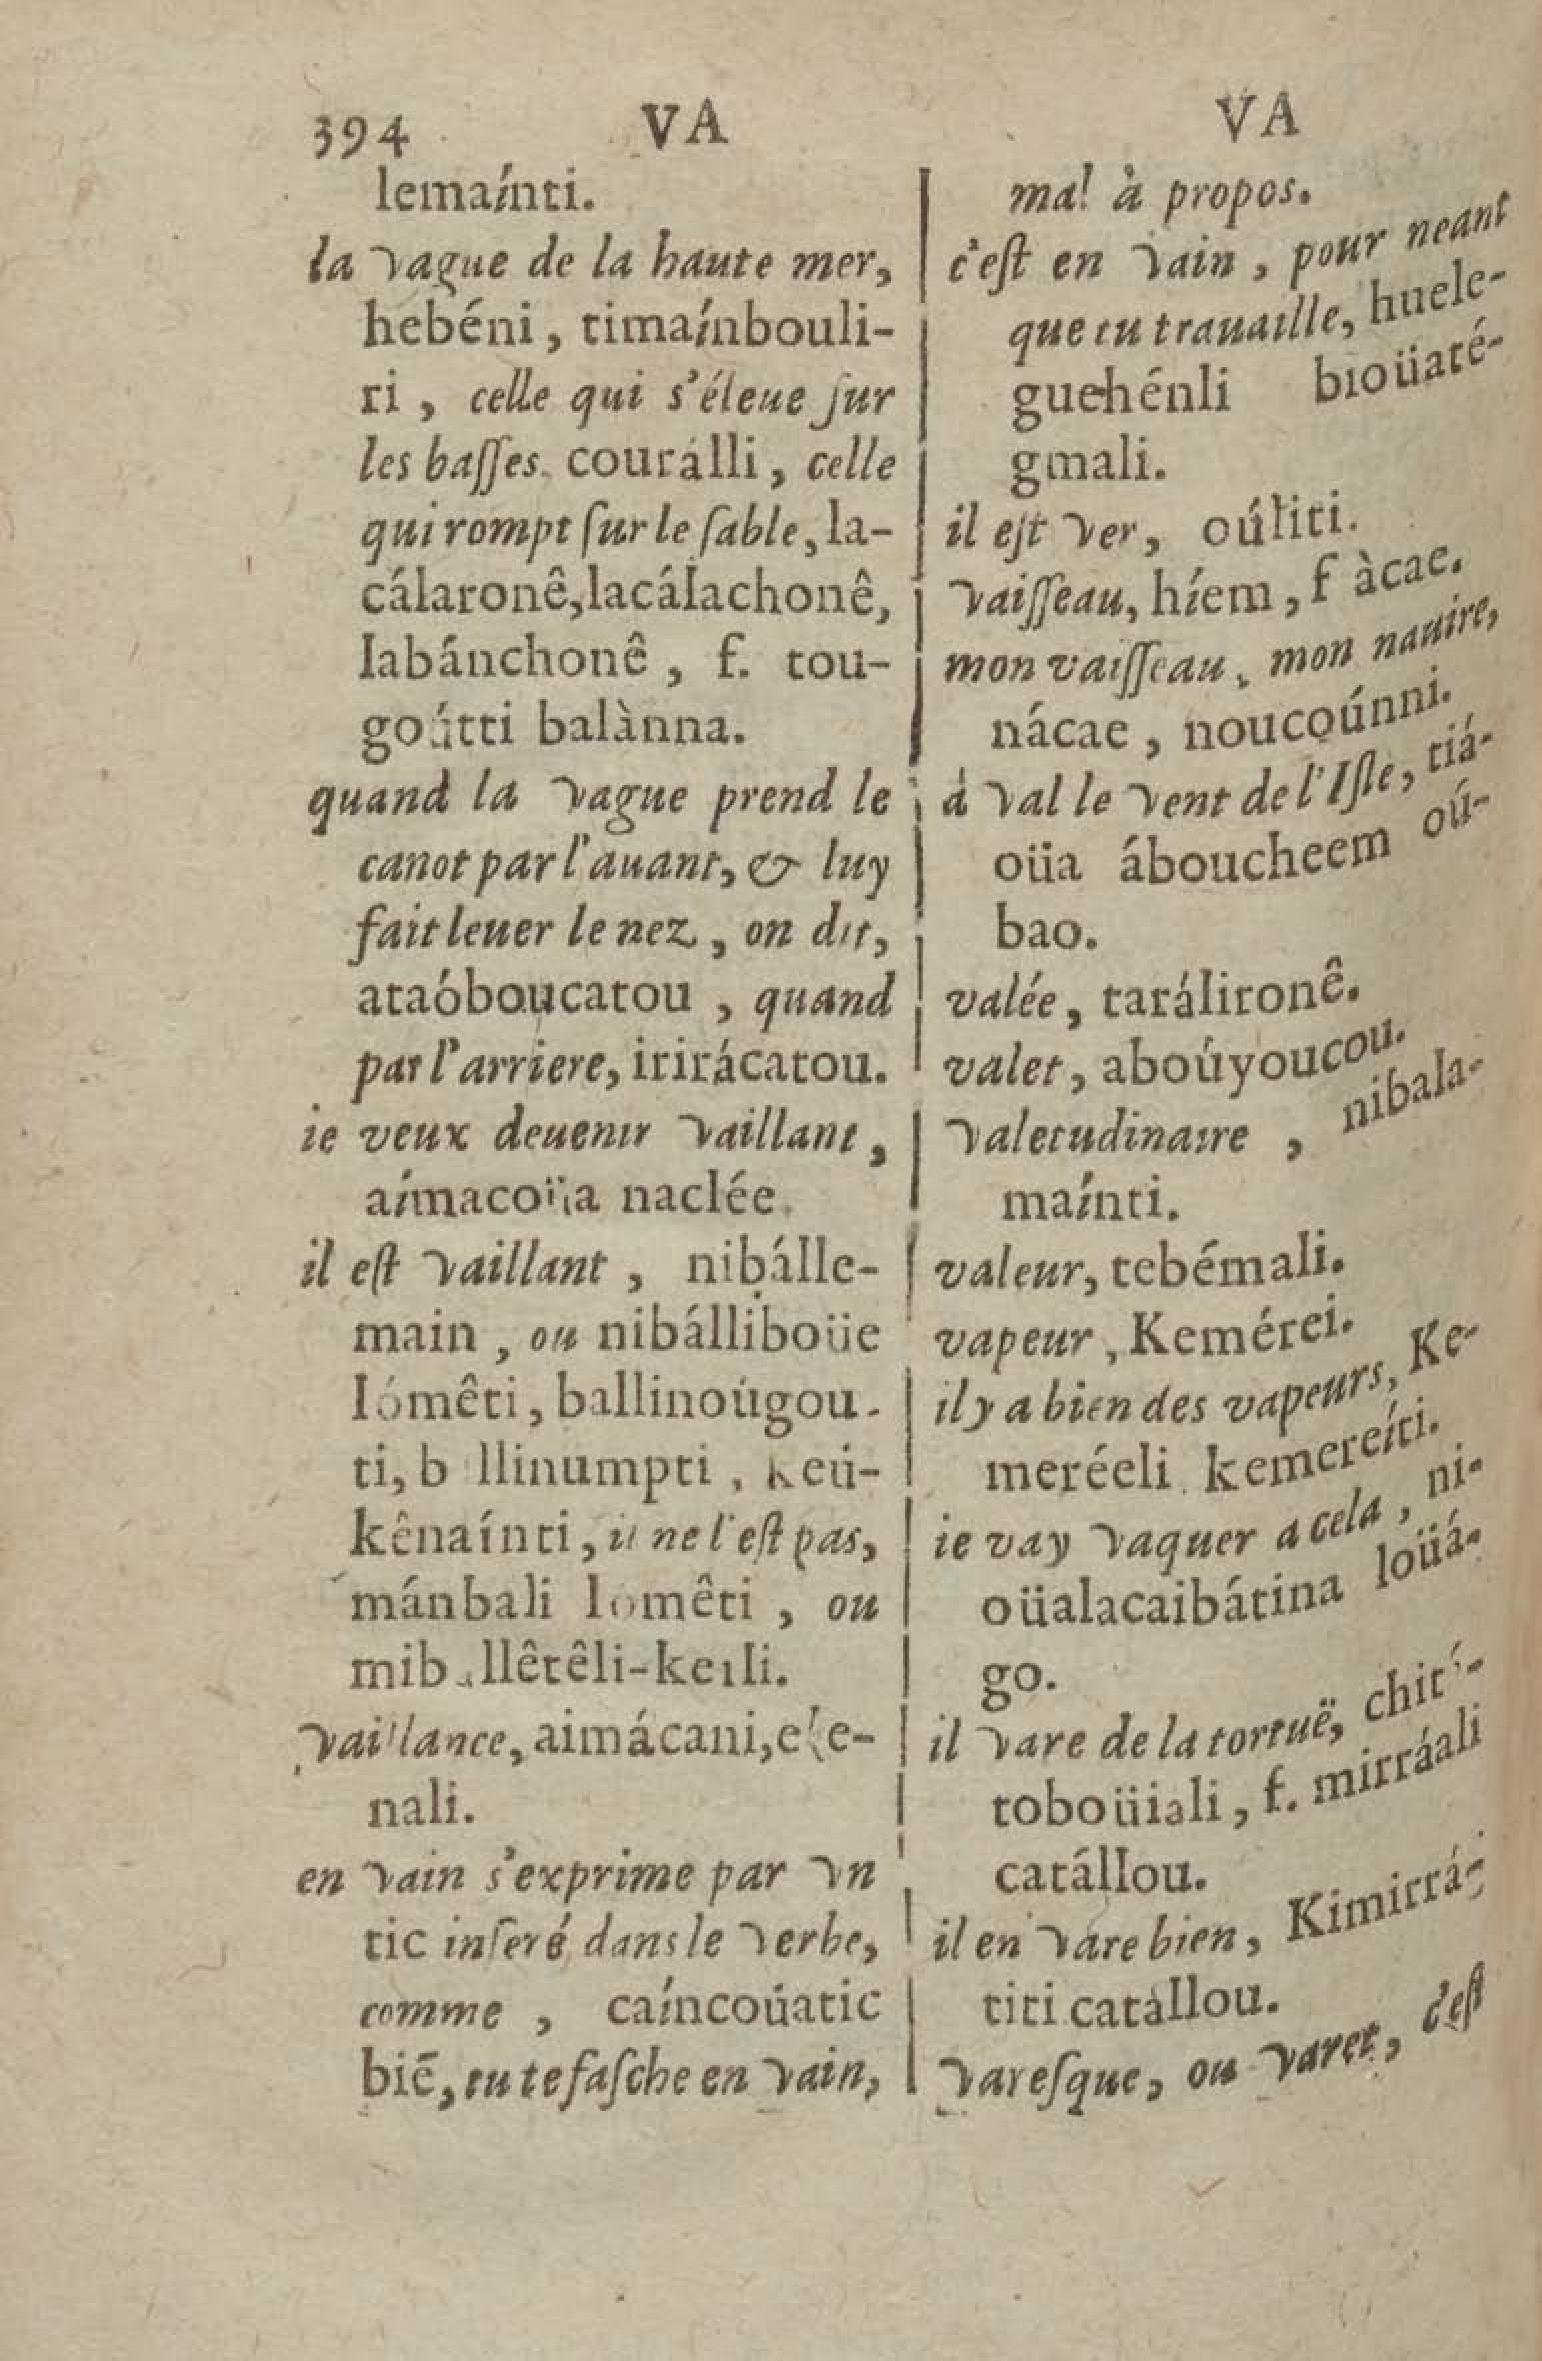 394 VA VA
lemaínti.
la vague de la haute mer,
hebéni, timaínbouli-
ri, celle qui s'éleue sur
les basses. courálli, celle
qui rompt sur le sable, la-
cálaronê, lacálachonê,
Iabánchonê, f. tou-
goútti balànna.
quand la vague prend le
canot par l'auant, & luy
fait leuer le nez, on dit,
ataóboucatou, quand
par l'arriere, irirácatou.
ie veux deuenir vaillant,
aímacoïıa naclée.
il est vaillant, nibálle-
main, ou nibálliboüe
Iómêti, ballinoúgou-
ti, b llinumpti, keú-
kênaínti, il ne l'est pas,
mánbali Iomêti, ou
mib llêtêli-keıli.
vaillance, aimácani, e e-
nali.
en vain s'exprime par vn
tic inseré dans le verbe,
comme, caíncoúatic
biē, tu te fasche en vain,
mal à propos.
c'est en vain, pour neant
que tu trauaille, huele-
guehénli bioüaté-
gmali.
il est ver, oúliti.
vaisseau, híem, f àcae.
mon vaisseau, mon nauire,
nácae, noucoúnni.
à val le vent de l'Isle, tiá-
oüa áboucheem oú-
bao.
valée, tarálironê.
valet, aboúyoucou.
valetudinaire, nibala-
maínti.
valeur, tebémali.
vapeur, Kemérei.
il y a bien des vapeurs, Ke-
meréeli kemereíti.
ie vay vaquer a cela, ni-
oüalacaibátina loüá-
go.
il vare de la tortuë, chití-
toboüiali, f. mirráali
catállou.
il en vare bien, Kimirrá-
titi catàllou.
varesque, ou varet, c'est